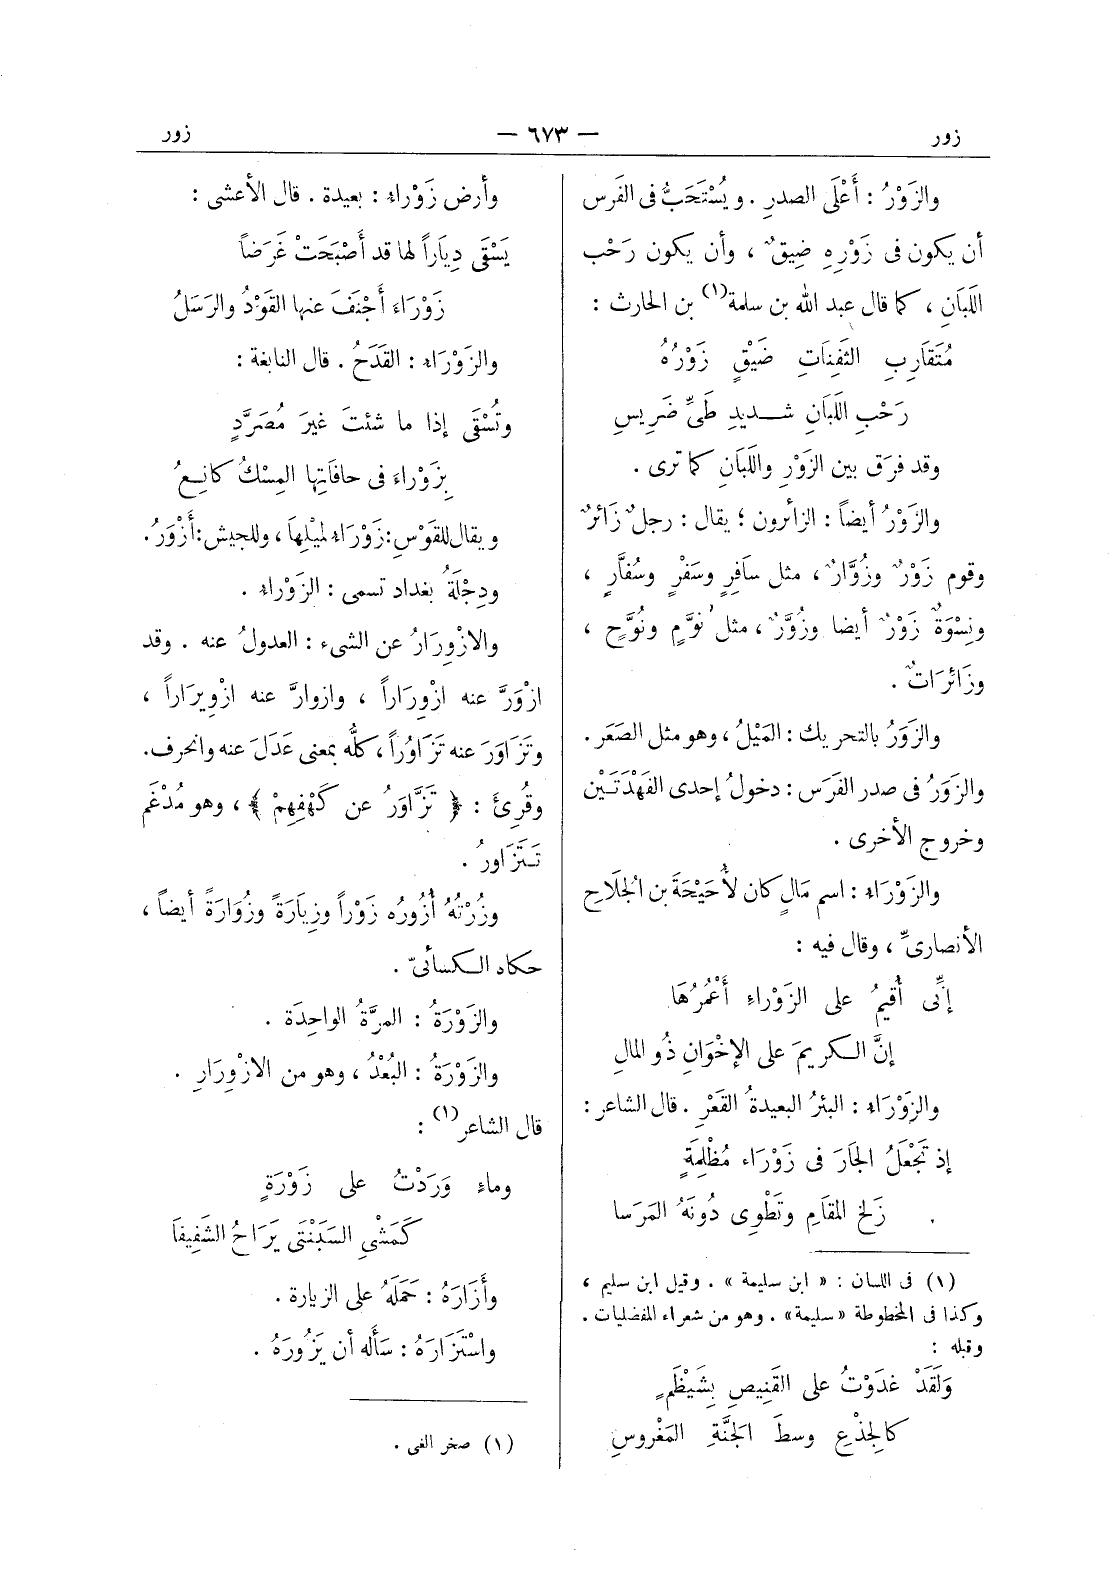 زور — ٦٧٣ — زور
والزَوْرُ : أَعْلَى الصدرِ . ويُسْتَحَبُّ فى الفَرس
أن يكون فى زَوْرِهِ ضِيقٌ ، وأن يكون رَحْب
اللَبَانِ ، كما قال عبد الله بن سلمة(١) بن الحارث :
مُتَقَارِبِ الثَفِنَاتِ ضَيْقٍ زَوْرُهُ
رَحْبِ اللَبَانِ شديدِ طَىِّ ضَرِيسِ
وقد فرَق بين الزَوْرِ واللَبَانِ كما ترى .
والزَوْرُ أيضاً : الزائرون ؛ يقال : رجلٌ زَائرٌ
وقوم زَوْرٌ وزُوَّارٌ ، مثل سَافِرٍ وسَفْرٍ وسُفَّارٍ ،
ونِسْوَةٌ زَوْرٌ أيضا وزُوَّرٌ ، مثل نُوَّمٍ ونُوَّحٍ ،
وزَائرَاتٌ .
والزَوَرُ بالتحريك : المَيْلُ ، وهو مثل الصَعَر .
والزَوَرُ فى صدر الفَرَس : دخولُ إحدى الفَهْدَتَيْن
وخروج الأخرى .
والزَوْرَاء : اسم مَالٍ كان لأُحَيْحَةَ بن الجُلَاحِ
الأنصارىِّ ، وقال فيه :
إنِّى أُقيمُ على الزَوْراءِ أَعْمُرُهَا
إنَّ الكريمَ على الإخْوَانِ ذُو المالِ
والزَوْرَاء : البئرُ البعيدةُ القَعْرِ . قال الشاعر :
إذ تَجْعَلُ الجَارَ فى زَوْرَاء مُظْلِمَةٍ
زَلخ المقَامِ وتَطْوِى دُونَهُ المَرَسا
(١) فى اللسان : « ابن سليمة » . وقيل ابن سليم ،
وكذا فى المخطوطة « سليمة » . وهو من شعراء المفضليات .
وقبله :
وَلَقَدْ غدَوْتُ على القَنِيصِ بِشَيْظَمٍ
كالجِذْعِ وسطَ الجَنَّةِ المَغْروسِ
وأرض زَوْراء : بعيدة . قال الأعشى :
يَسْقَى دِيَاراً لها قد أَصْبَحَتْ غَرَضاً
زَوْرَاءَ أَجْنَفَ عنها القَوْدُ والرَسَلُ
والزَوْرَاء : القَدَحُ . قال النابغة :
وتُسْقَى إذا ما شئتَ غيرَ مُصَرَّدٍ
بِزَوْراءَ فى حافَاتِها المِسْكُ كانِعُ
ويقال للقَوْسِ : زَوْرَاء لمَيْلِهَا ، وللجيش : أَزْوَرُ .
ودِجْلَةُ بغداد تسمى : الزَوْرَاء .
والازْوِرَارُ عن الشىء : العدولُ عنه . وقد
ازْوَرَّ عنه ازْوِرَاراً ، وازوارَّ عنه ازْوِيرَاراً ،
وتَزَاوَرَ عنه تَزَاوُراً ، كلُّه بمعنى عَدَلَ عنه وانحرف .
وقُرِئَ : ﴿ تَزَّاوَرُ عن كَهْفِهِمْ ﴾ ، وهو مُدْغَم
تَتَزَاورُ .
وزُرْتُهُ أَزُورُه زَوْراً وزِيَارَةً وزُوَارَةً أيضاً ،
حكاه الكسائىّ .
والزَوْرَةُ : المرَّةُ الواحِدَة .
والزَوْرَةُ : البُعْدُ ، وهو من الازْوِرَارِ .
قال الشاعر(١) :
وماءِ وَرَدْتُ على زَوْرَةٍ
كَمَشْىِ السَبَنْتَى يَرَاحُ الشَفِيفَا
وأَزَارَهُ : حَمَلَهُ على الزيارة .
واسْتَزَارَهُ : سَأَله أن يَزُورَهُ .
(١) صخر الغى .